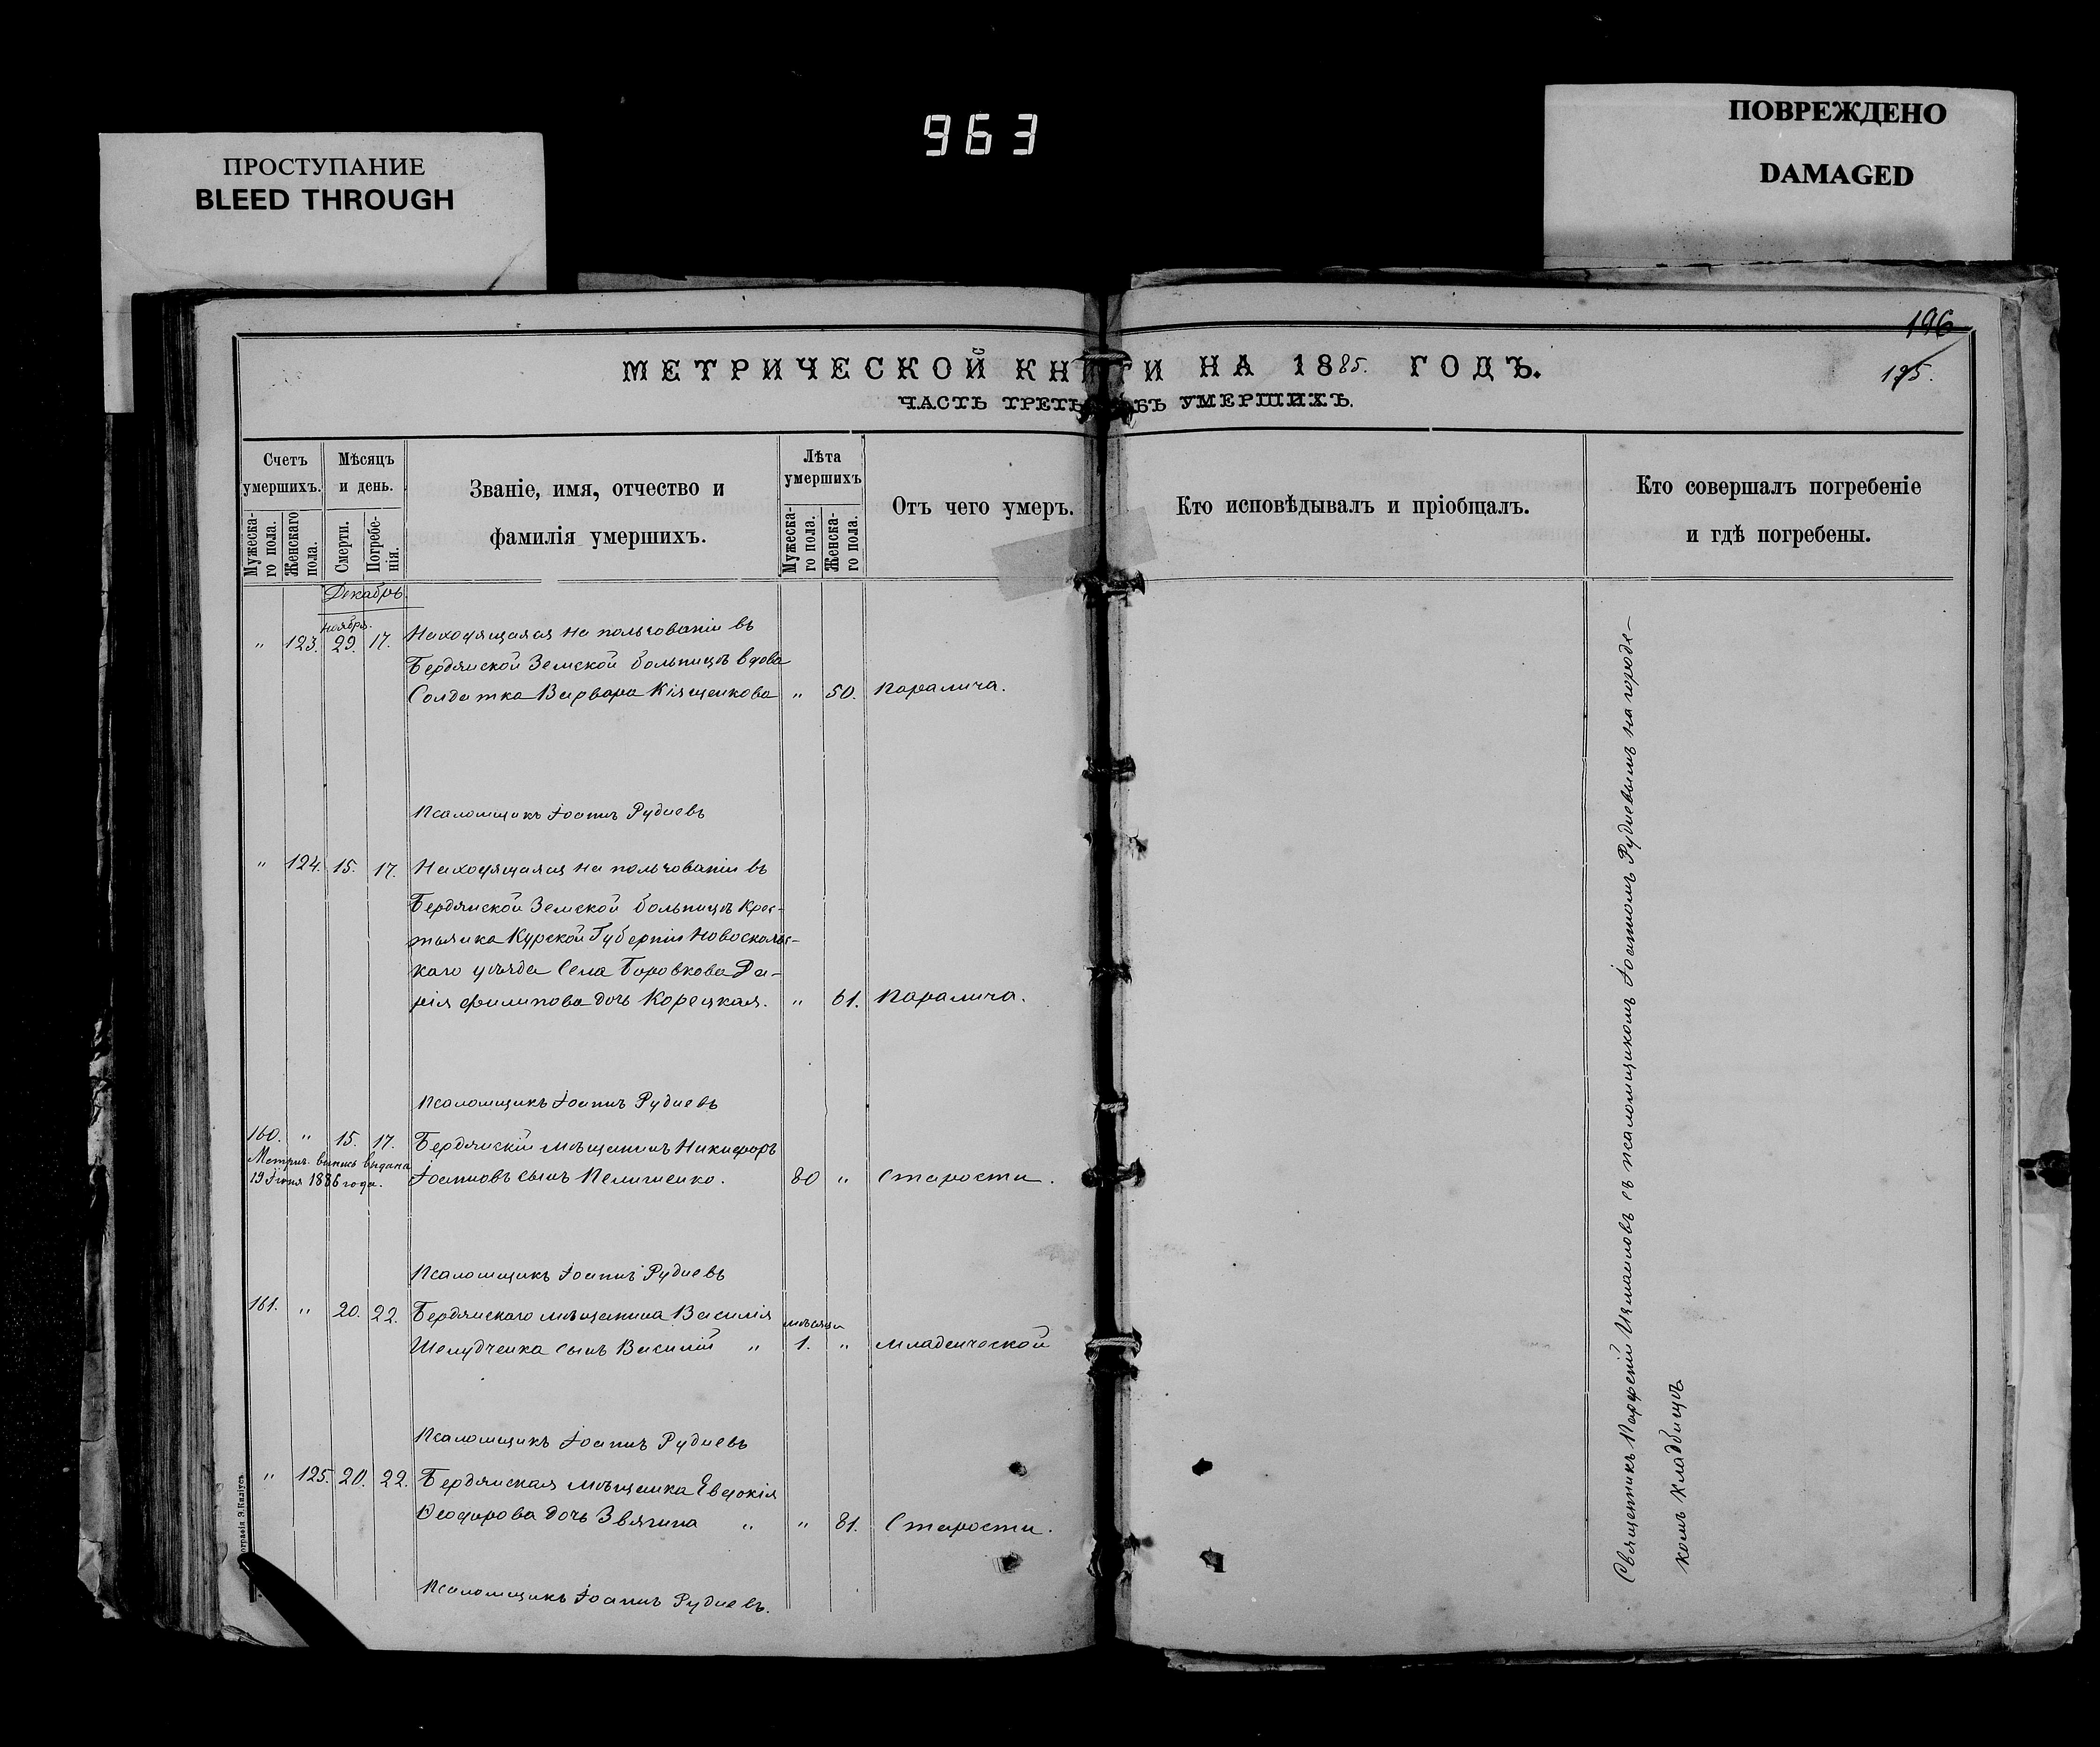 963
ПРОСТУПАНИЕ
BLEED THROUGH
ПОВРЕЖДЕНО
DAMAGED
196
195.
МЕТРИЧЕСКОЙ КНИГИ НА 1885. ГОДЪ.
ЧАСТЬ ТРЕТЬ БЪ УМЕРШИХЪ.
Счетъ умершихъ.
Мужеска-го пола.
Женскаго пола.
Мѣсяцъ и день.
Смерти.
Погребе-нія.
Званіе, имя, отчество и
фамилія умершихъ.
Лѣта умершихъ
Мужеска-го пола.
Женска-го пола.
Отъ чего умеръ.
Кто исповѣдывалъ и пріобщалъ.
Кто совершалъ погребеніе
и гдѣ погребены.
Декабрь
ноября.
" 123. 29. 17. Находящаяся на пользованіи въ
Бердянской Земской больницѣ вдова
Солдатка Варвара Кіященкова " 50. Паралича.
Псаломщикъ Іоаннъ Рудневъ
" 124. 15. 17. Находящаяся на пользованіи въ
Бердянской Земской больницѣ крес-
тьянка Курской Губерніи Новосколь-
каго уѣзда Села Боровкова Да-
рія Филипова дочь Корецкая. " 61. Паралича.
Псаломщикъ Іоаннъ Рудневъ
160. " 15. 17. Бердянскій мѣщанинъ Никифоръ
Метрич. выпись выдана
19 Іюня 1886 года.
Іоанновъ сынъ Пелипенко. 80 " Старости.
Псаломщикъ Іоаннъ Рудневъ
161. " 20. 22. Бердянскаго мѣщанина Василія
мѣсяца
Шелудченка сынъ Василій " 1. " младенческой
Псаломщикъ Іоаннъ Рудневъ
" 125. 20. 22. Бердянская мѣщанка Евдокія
Ѳеодорова дочь Звягина " " 81. Старости.
Псаломщикъ Іоаннъ Рудневъ.
Священникъ Парфеній съ псаломщикомъ Іоанномъ Рудневымъ на городс-
комъ кладбищѣ